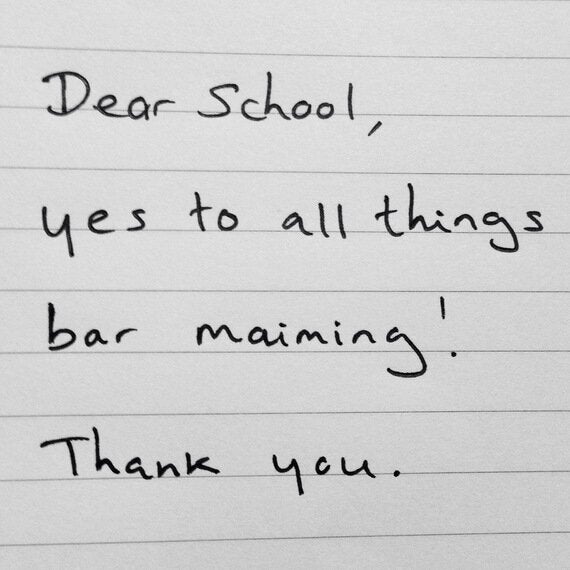 Dear School,
yes to all things
bar maiming!
Thank you.